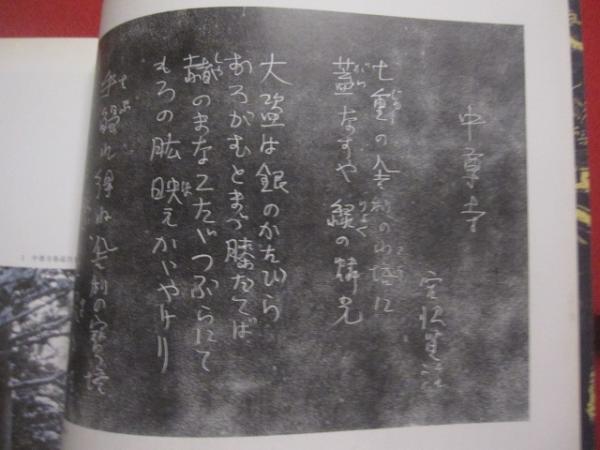 中尊寺
宮沢賢治
七重の舎利の小塔に
蓋なすや緑の燐光
大盗は銀のかたびら
おろがむとまづ膝だてば
赭のまなこたゞつぶらにて
もろの肱映えかゞやけり
手触れ得ね舎利の寳塔